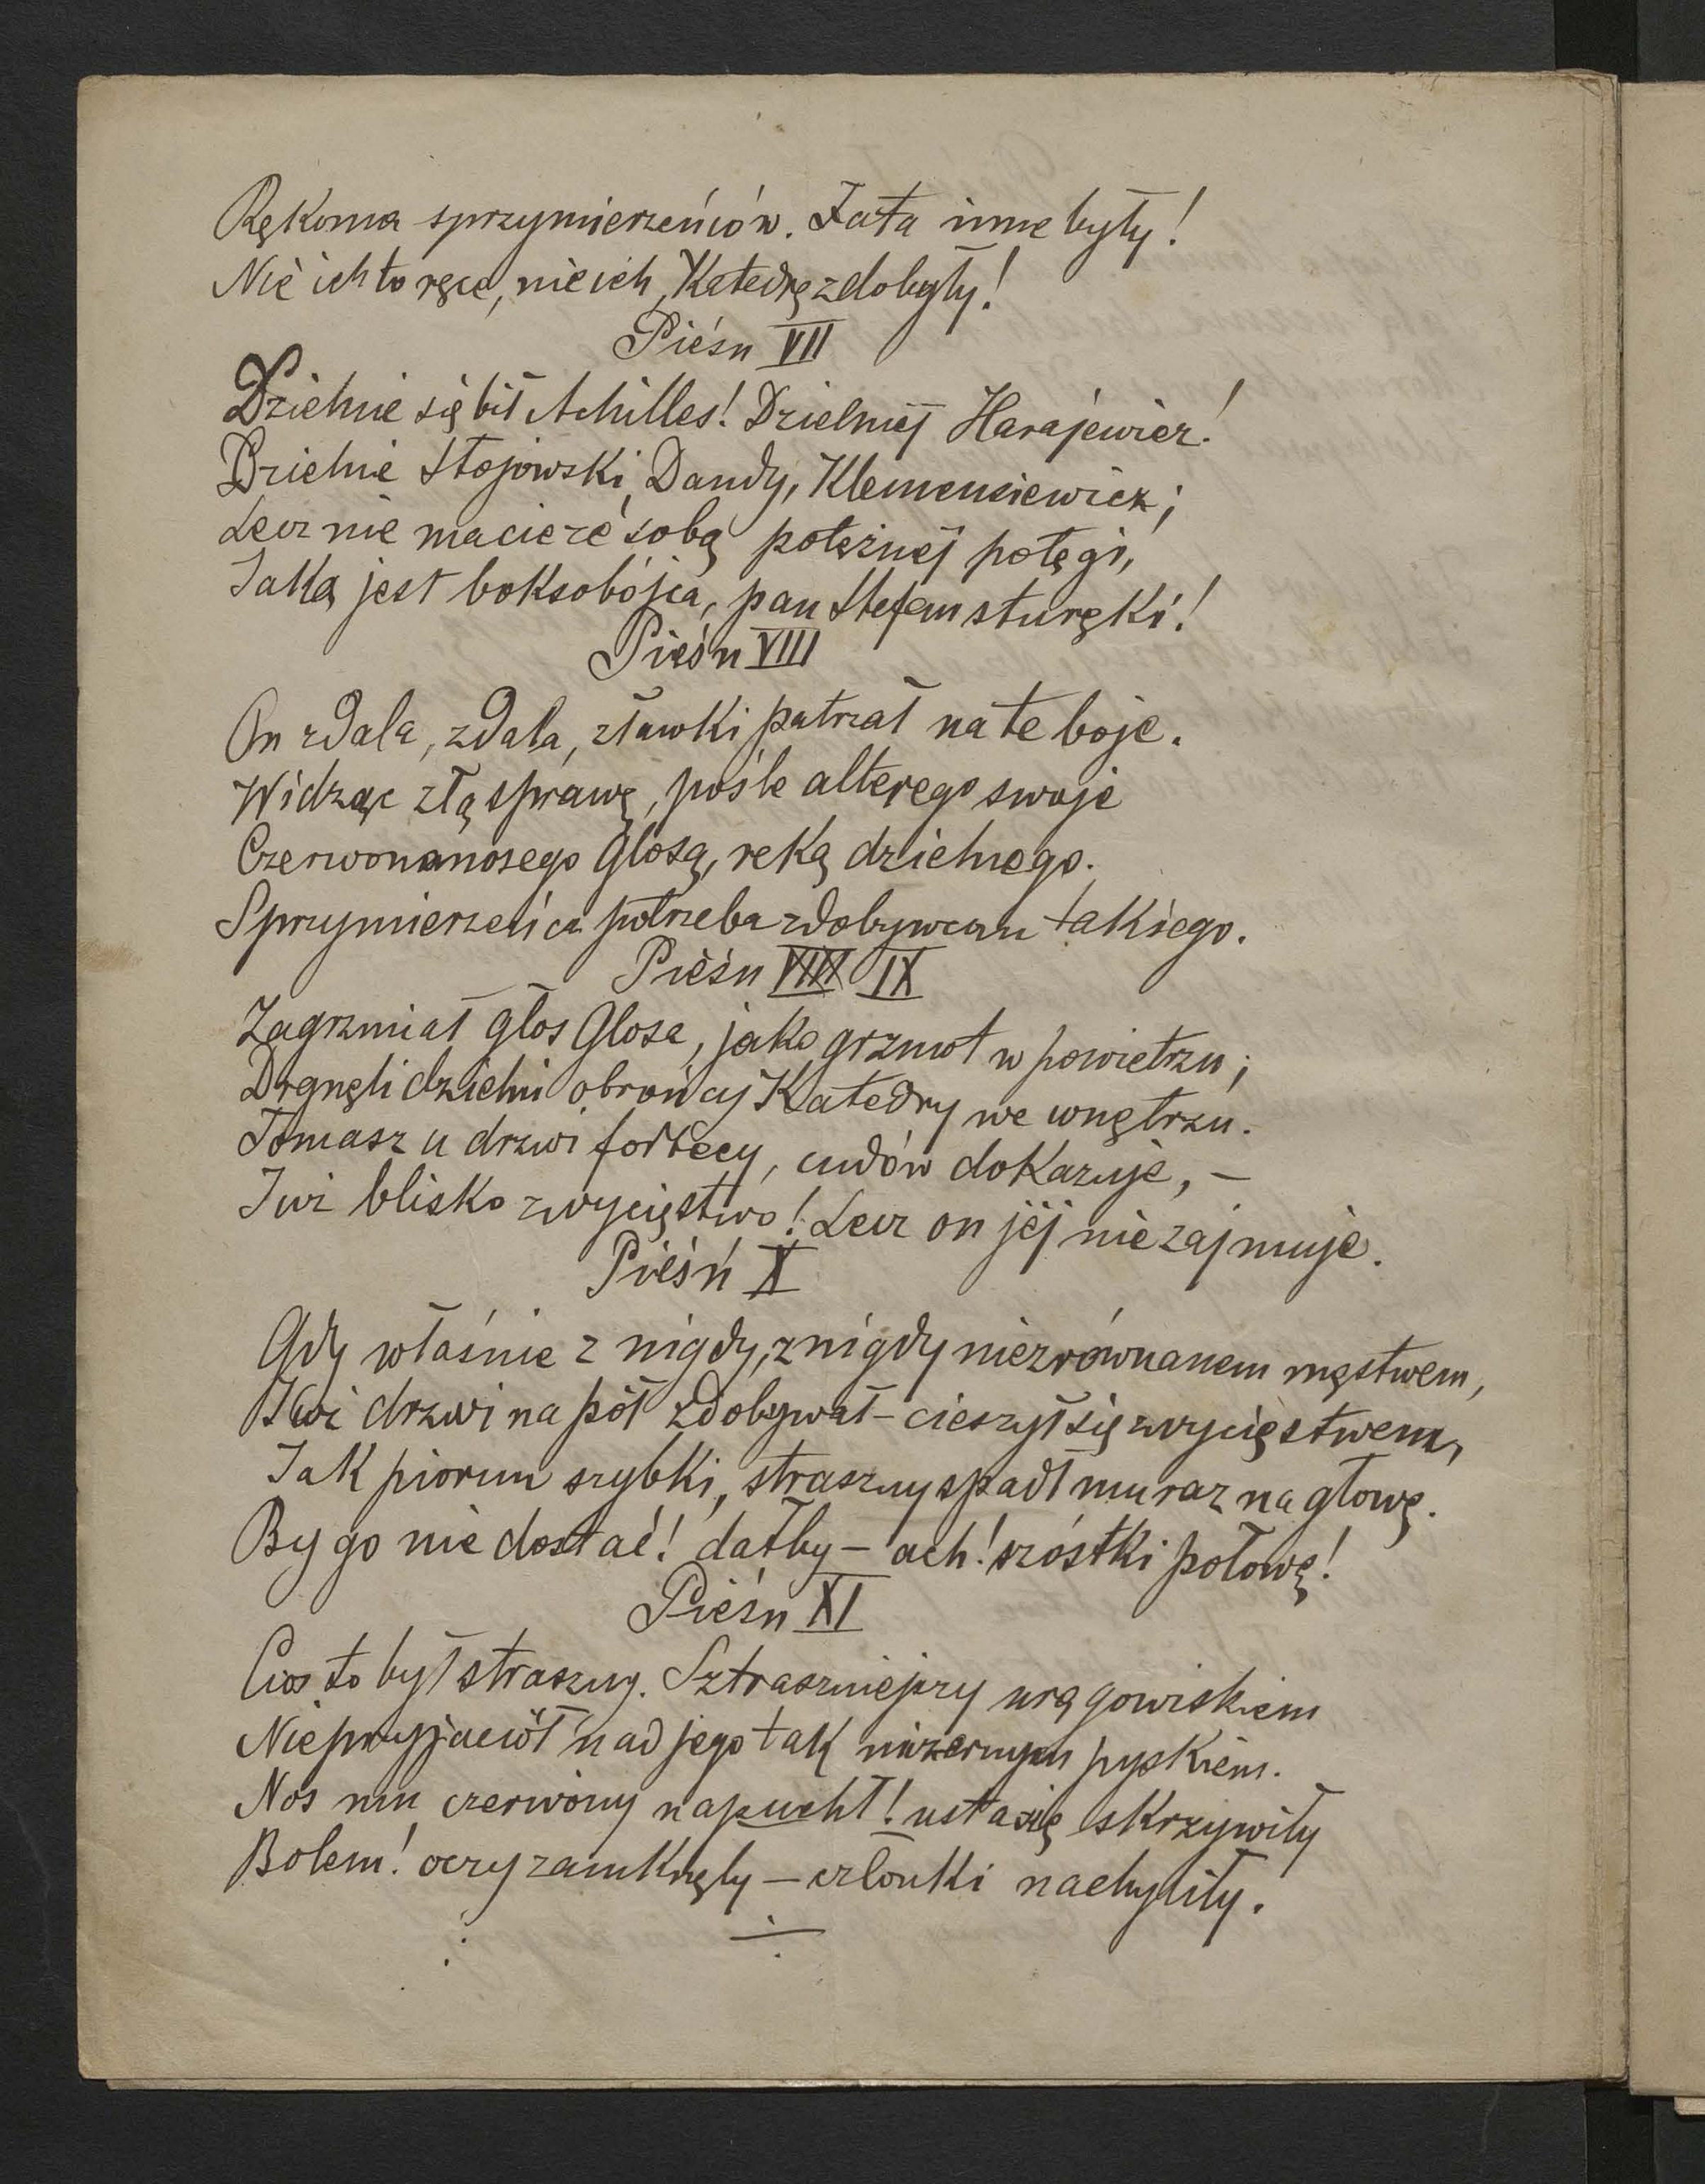 Rękoma sprzymierzeńców. Fata inne były!
Nie ich to ręce, nie ich, Katedrę zdobyły!
Pieśn VII
Dzielnie się bił Achilles! Dzielniej Harajewicz!
Dzielnie Stojowski, Dandy, Klemensiewicz;
Lecz nie macie ze sobą potężnej potęgi,
Jaką jest boksobójca, pan Stefan sturęki!
Pieśn VIII
On zdala, zdala, z ławki patrzał na te boje.
Widząc złą sprawę, pośle alterego swoje
Czerwonanosego Glosą, ręką dzielnego.
Sprzymierzeńca potrzeba zdobywcom takiego.
Pieśn VIII IX
Zagrzmiał głos Glosa, jako grzmot w powietrzu;
Drgnęli dzielni obrońcy Katedry we wnętrzu.
Tomasz u drzwi fortecy, cudów dokazuje, –
Już blisko zwycięstwo! Lecz on jéj nie zajmuje.
Pieśń X
Gdy właśnie z nigdy, z nigdy niezrównanem męstwem,
Już drzwi na pół zdobywał – cieszył się zwycięstwem,
Jak piorun szybki, straszny spadł mu raz na głowę.
By go nie dostać! dałby – ach! szóstki połowę!
Pieśn XI
Cios to był straszny. Sztraszniejszy urągowiskiem
Nieprzyjaciół nad jego tak mizernym pyskiem.
Nos mu czerwony napuchł! usta się skrzywiły
Bolem! oczy zamknęły – członki nachyliły.